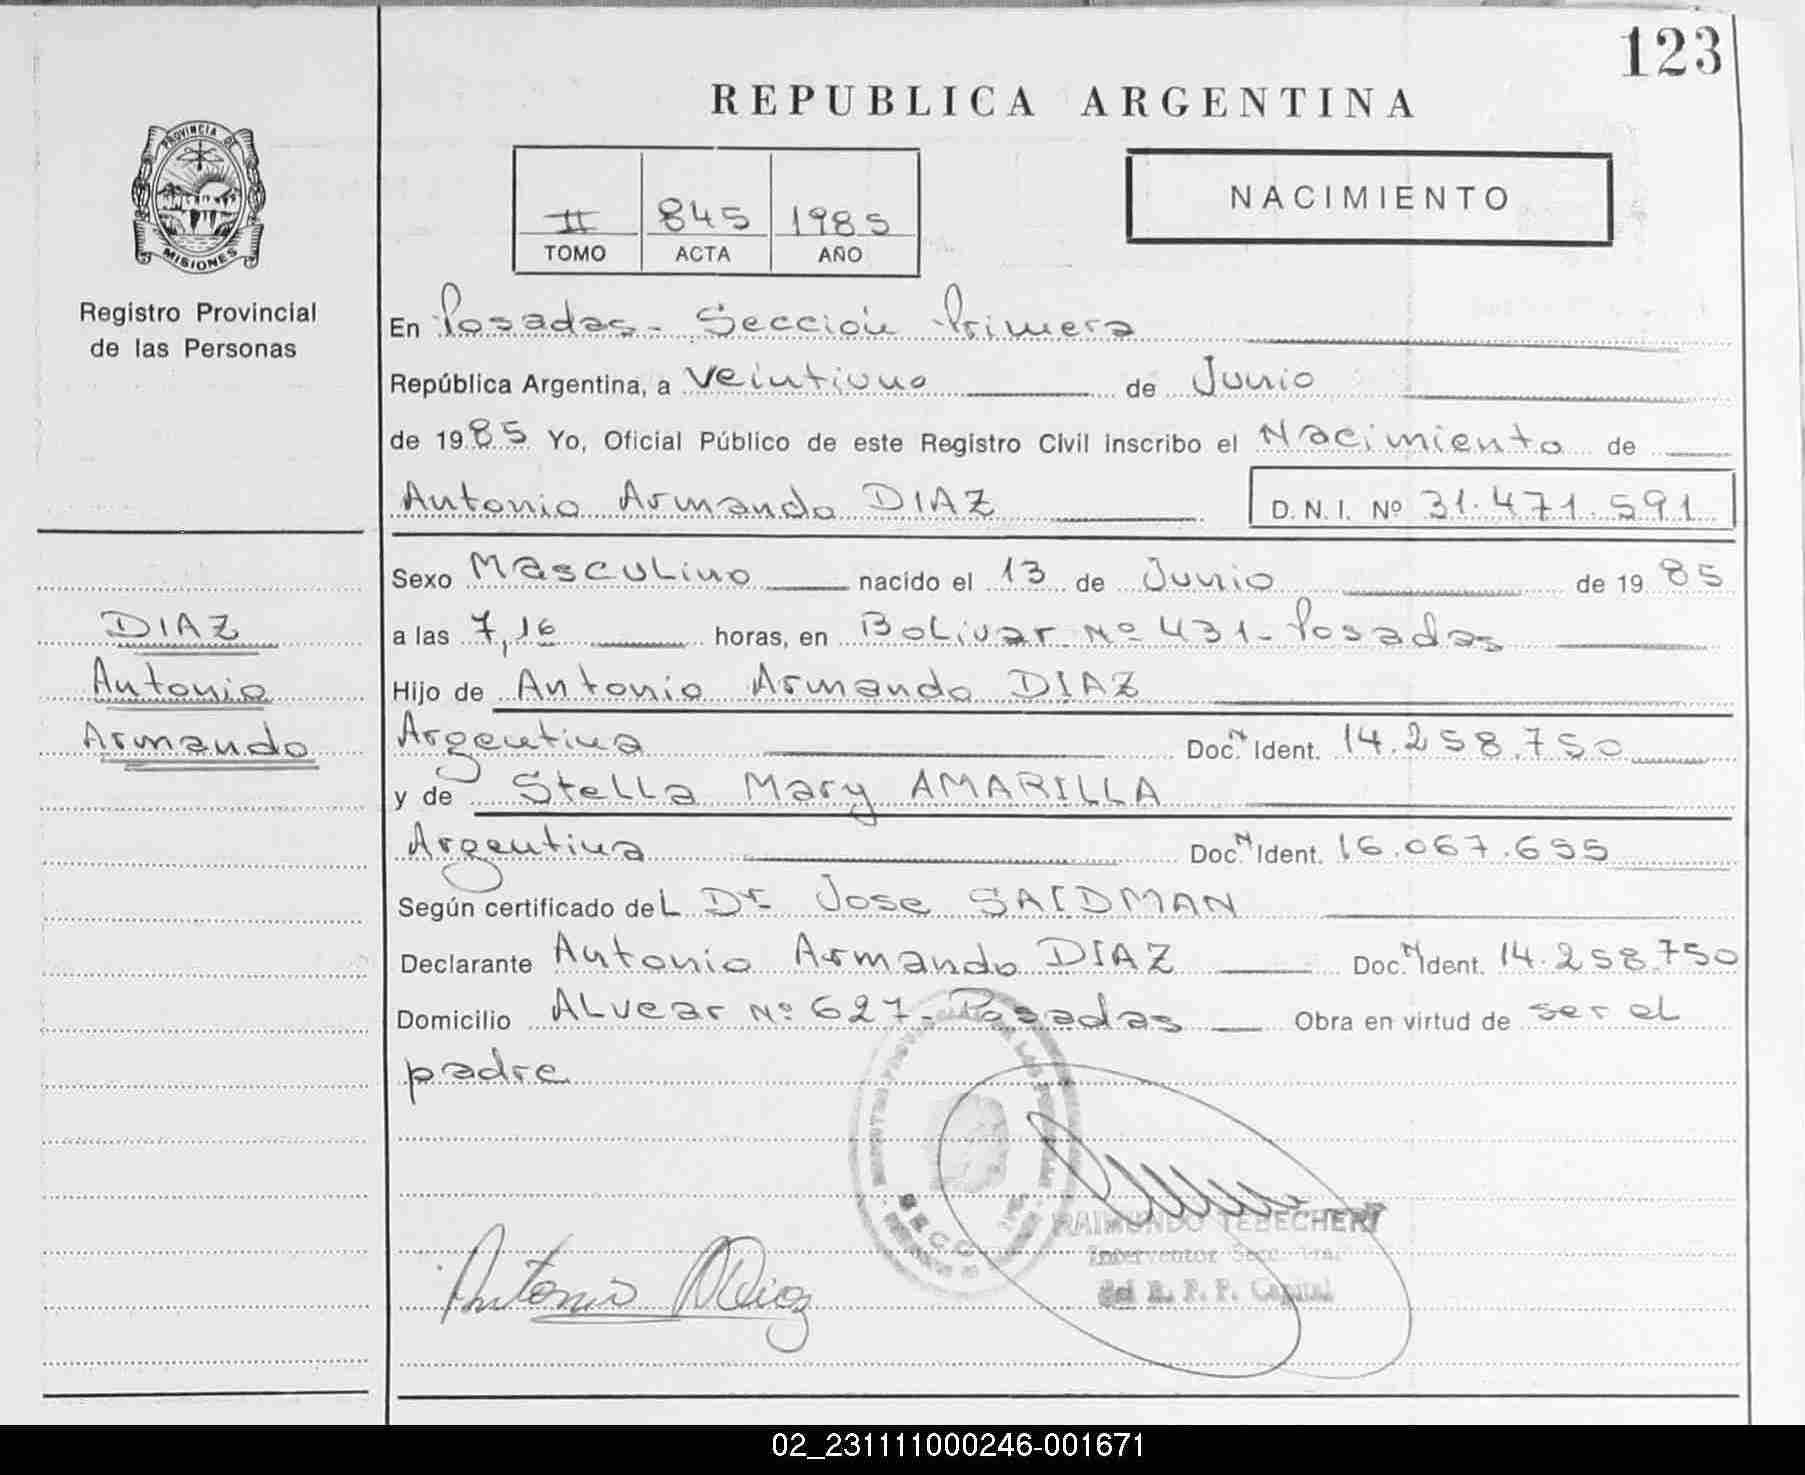 123
REPUBLICA ARGENTINA
PROVINCIA DE
MISIONES
Registro Provincial
de las Personas
II 845 1985
TOMO ACTA AÑO
NACIMIENTO
En Posadas - Sección Primera
República Argentina, a Veintiuno de Junio
de 1985 Yo, Oficial Público de este Registro Civil inscribo el Nacimiento de
Antonio Armando DIAZ D. N. I. Nº 31.471.591
Sexo Masculino nacido el 13 de Junio de 19 85
a las 7,16 horas, en Bolivar Nº 431 - Posadas
Hijo de Antonio Armando DIAZ
Argentina Doc. N Ident. 14.258.750
y de Stella Mary AMARILLA
Argentina Doc. N Ident. 16.067.655
Según certificado del Dr. Jose SAIDMAN
Declarante Antonio Armando DIAZ Doc. N Ident. 14.258.750
Domicilio Alvear Nº 627 - Posadas Obra en virtud de ser el
padre
DIAZ
Antonio
Armando
RAIMUNDO TEBECHERI
Interventor Secc. 1ra.
del R. P. P. Capital
Antonio A Diaz
02_231111000246-001671